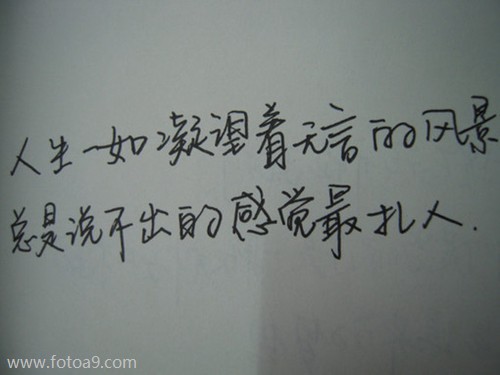 人生一如凝望着无言的风景
总是说不出的感觉最扎人.
www.fotoa9.com